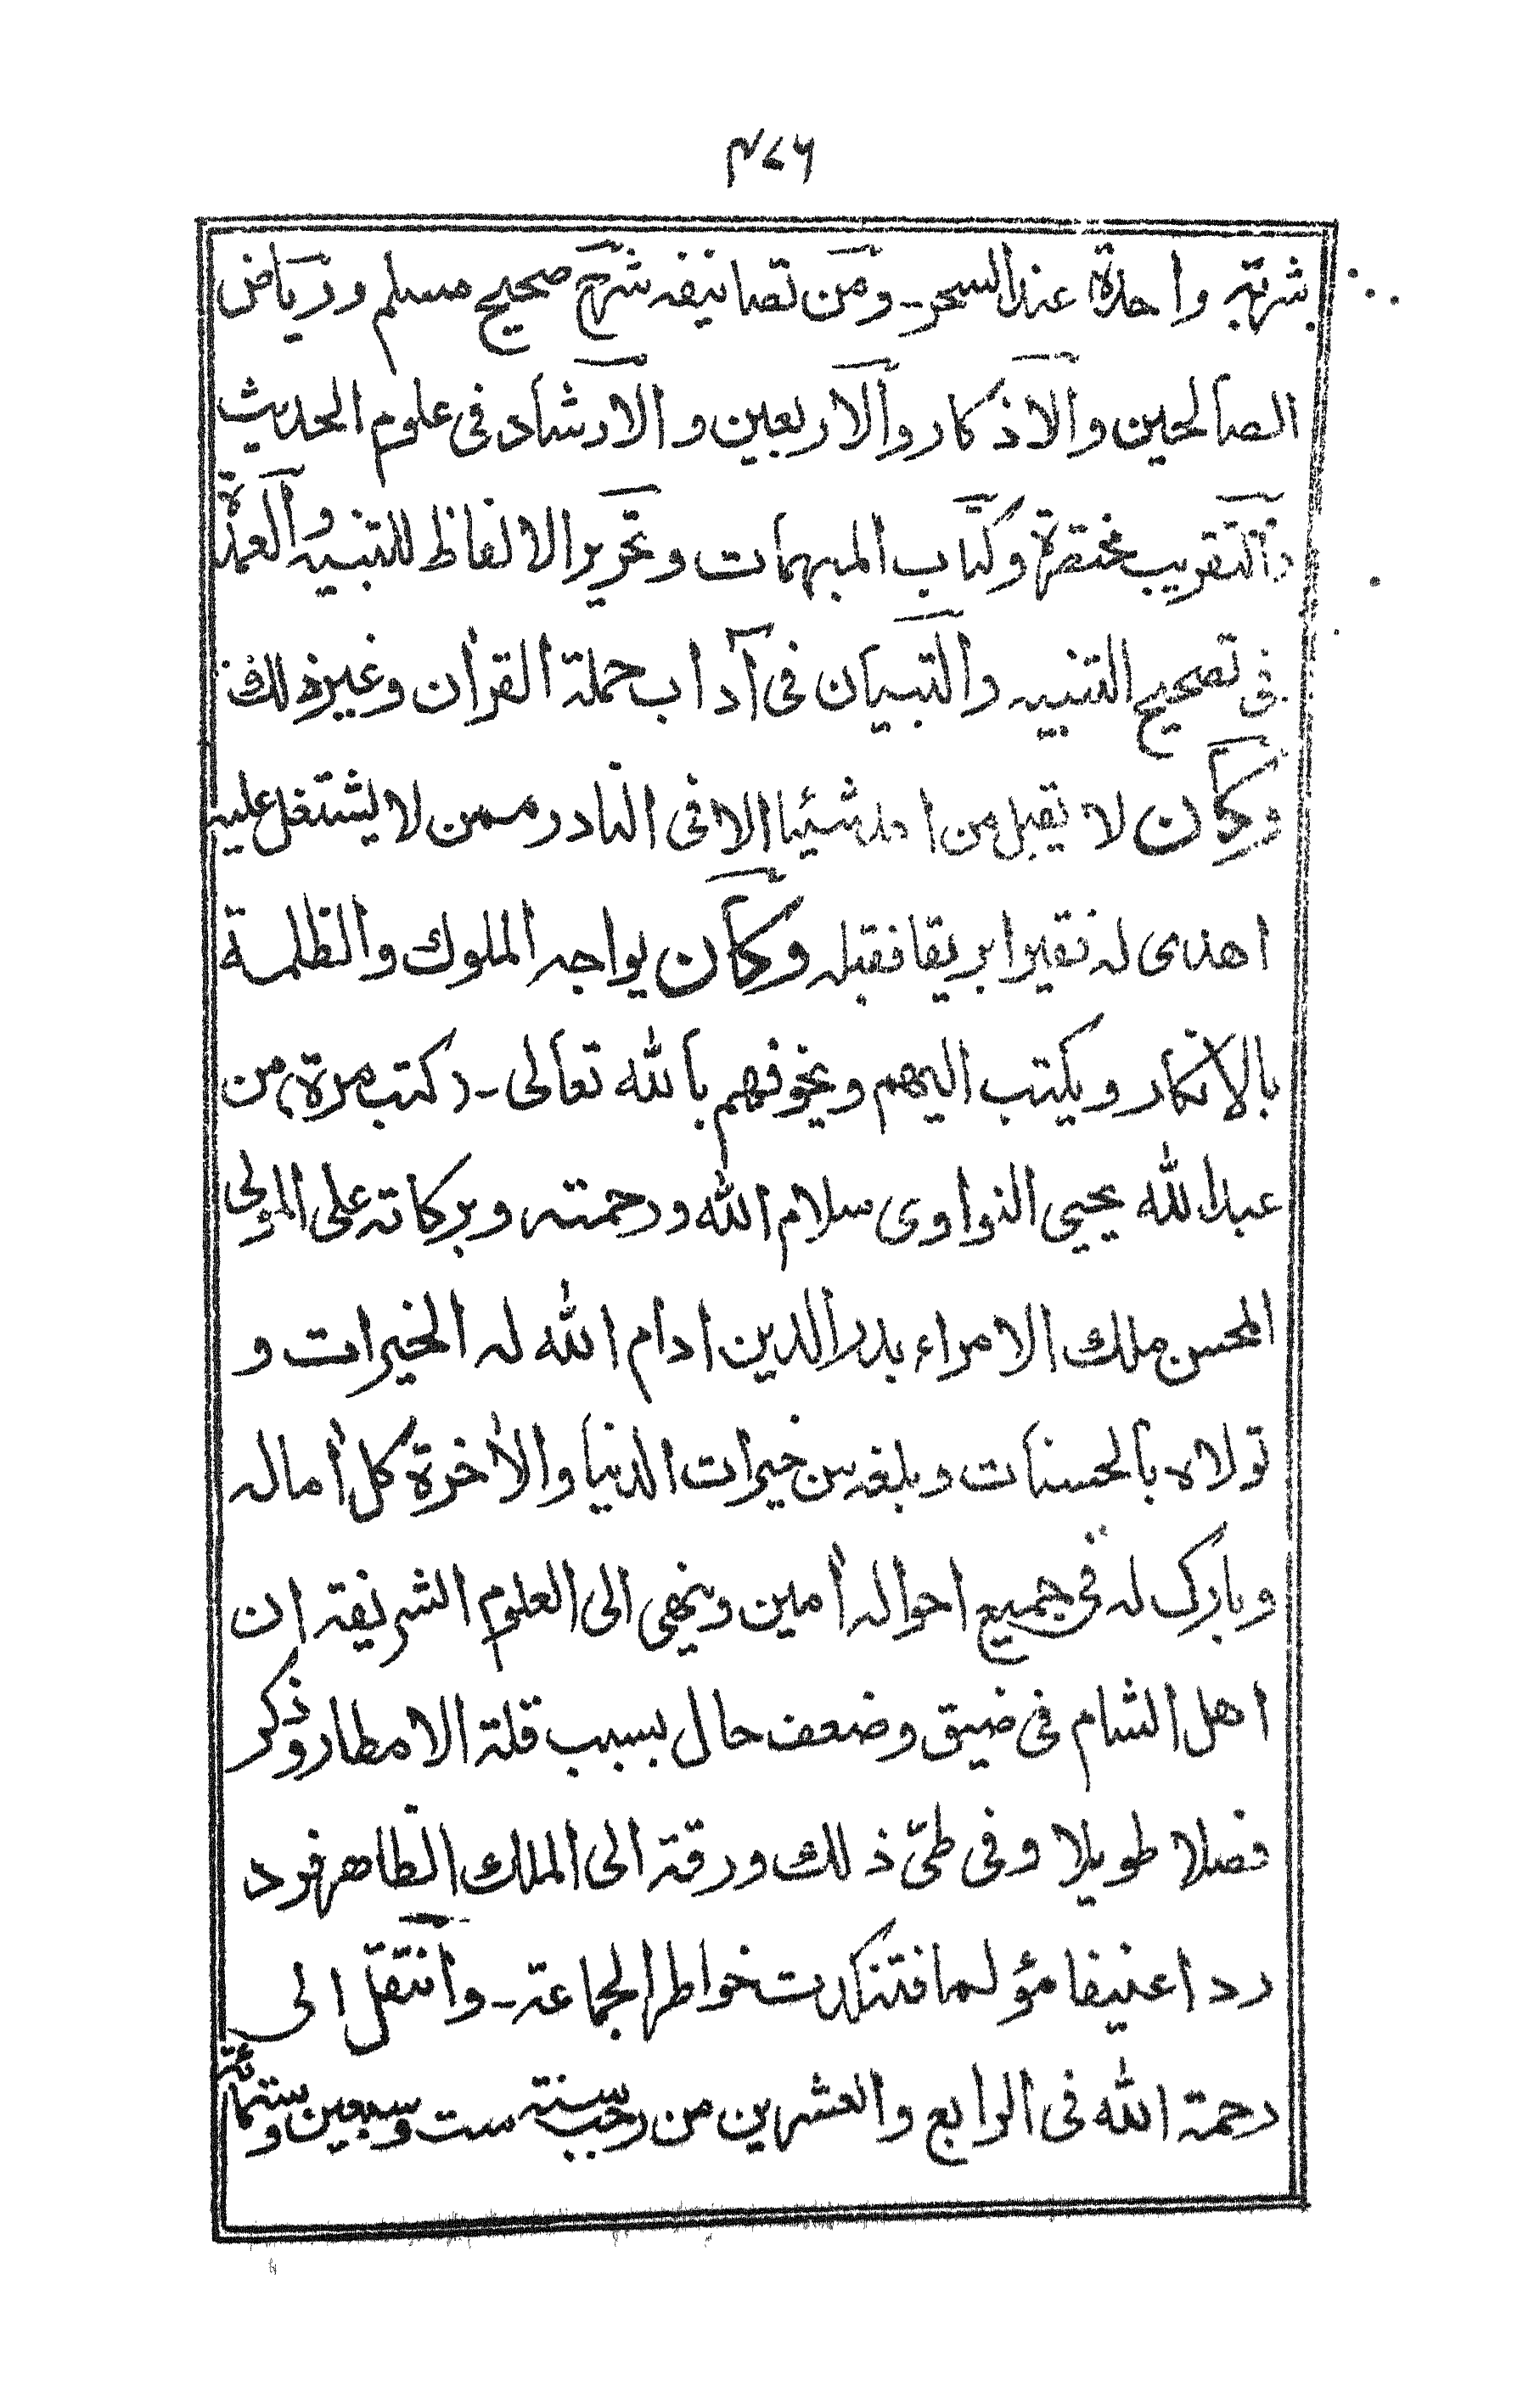 ۴۷۶
بشربة واحدة عند السحر ـ ومن تصانيفه شرح صحيح مسلم ورياض
الصالحين والاذكار والاربعين والارشاد فى علوم الحديث
والتقريب مختصرة وكتاب المبهمات وتحرير الالفاظ للتنبيه والعمدة
فى تصحيح التنبيه والتبيان فى آداب حملة القران وغير ذلك
وكان لا يقبل من احد شئيا الا فى النادر ممن لا يشتغل عليه
اهدى له فقير ابريقا فقبله وكان يواجه الملوك والظلمة
بالانكار ويكتب اليهم ويخوفهم بالله تعالى ـ (كتب مرة) من
عبد الله يحيى النواوى سلام الله ورحمته وبركاته على المولى
المحسن ملك الامراء بدر الدين ادام الله له الخيرات و
تولاه بالحسنات وبلغه من خيرات الدنيا والأخرة كل أماله
وبارك له فى جميع احواله أمين وينهى الى العلوم الشريفة ان
اهل الشام فى ضيق وضعف حال بسبب قلة الامطار وذكر
فصلا طويلا وفى طىّ ذلك ورقة الى الملك الظاهر فرد
ردا عنيفا مؤلما فتنكدت خواطر الجماعة ـ وانتقل الى
رحمة الله فى الرابع والعشرين من رجب سنة ست وسبعين وستمائة